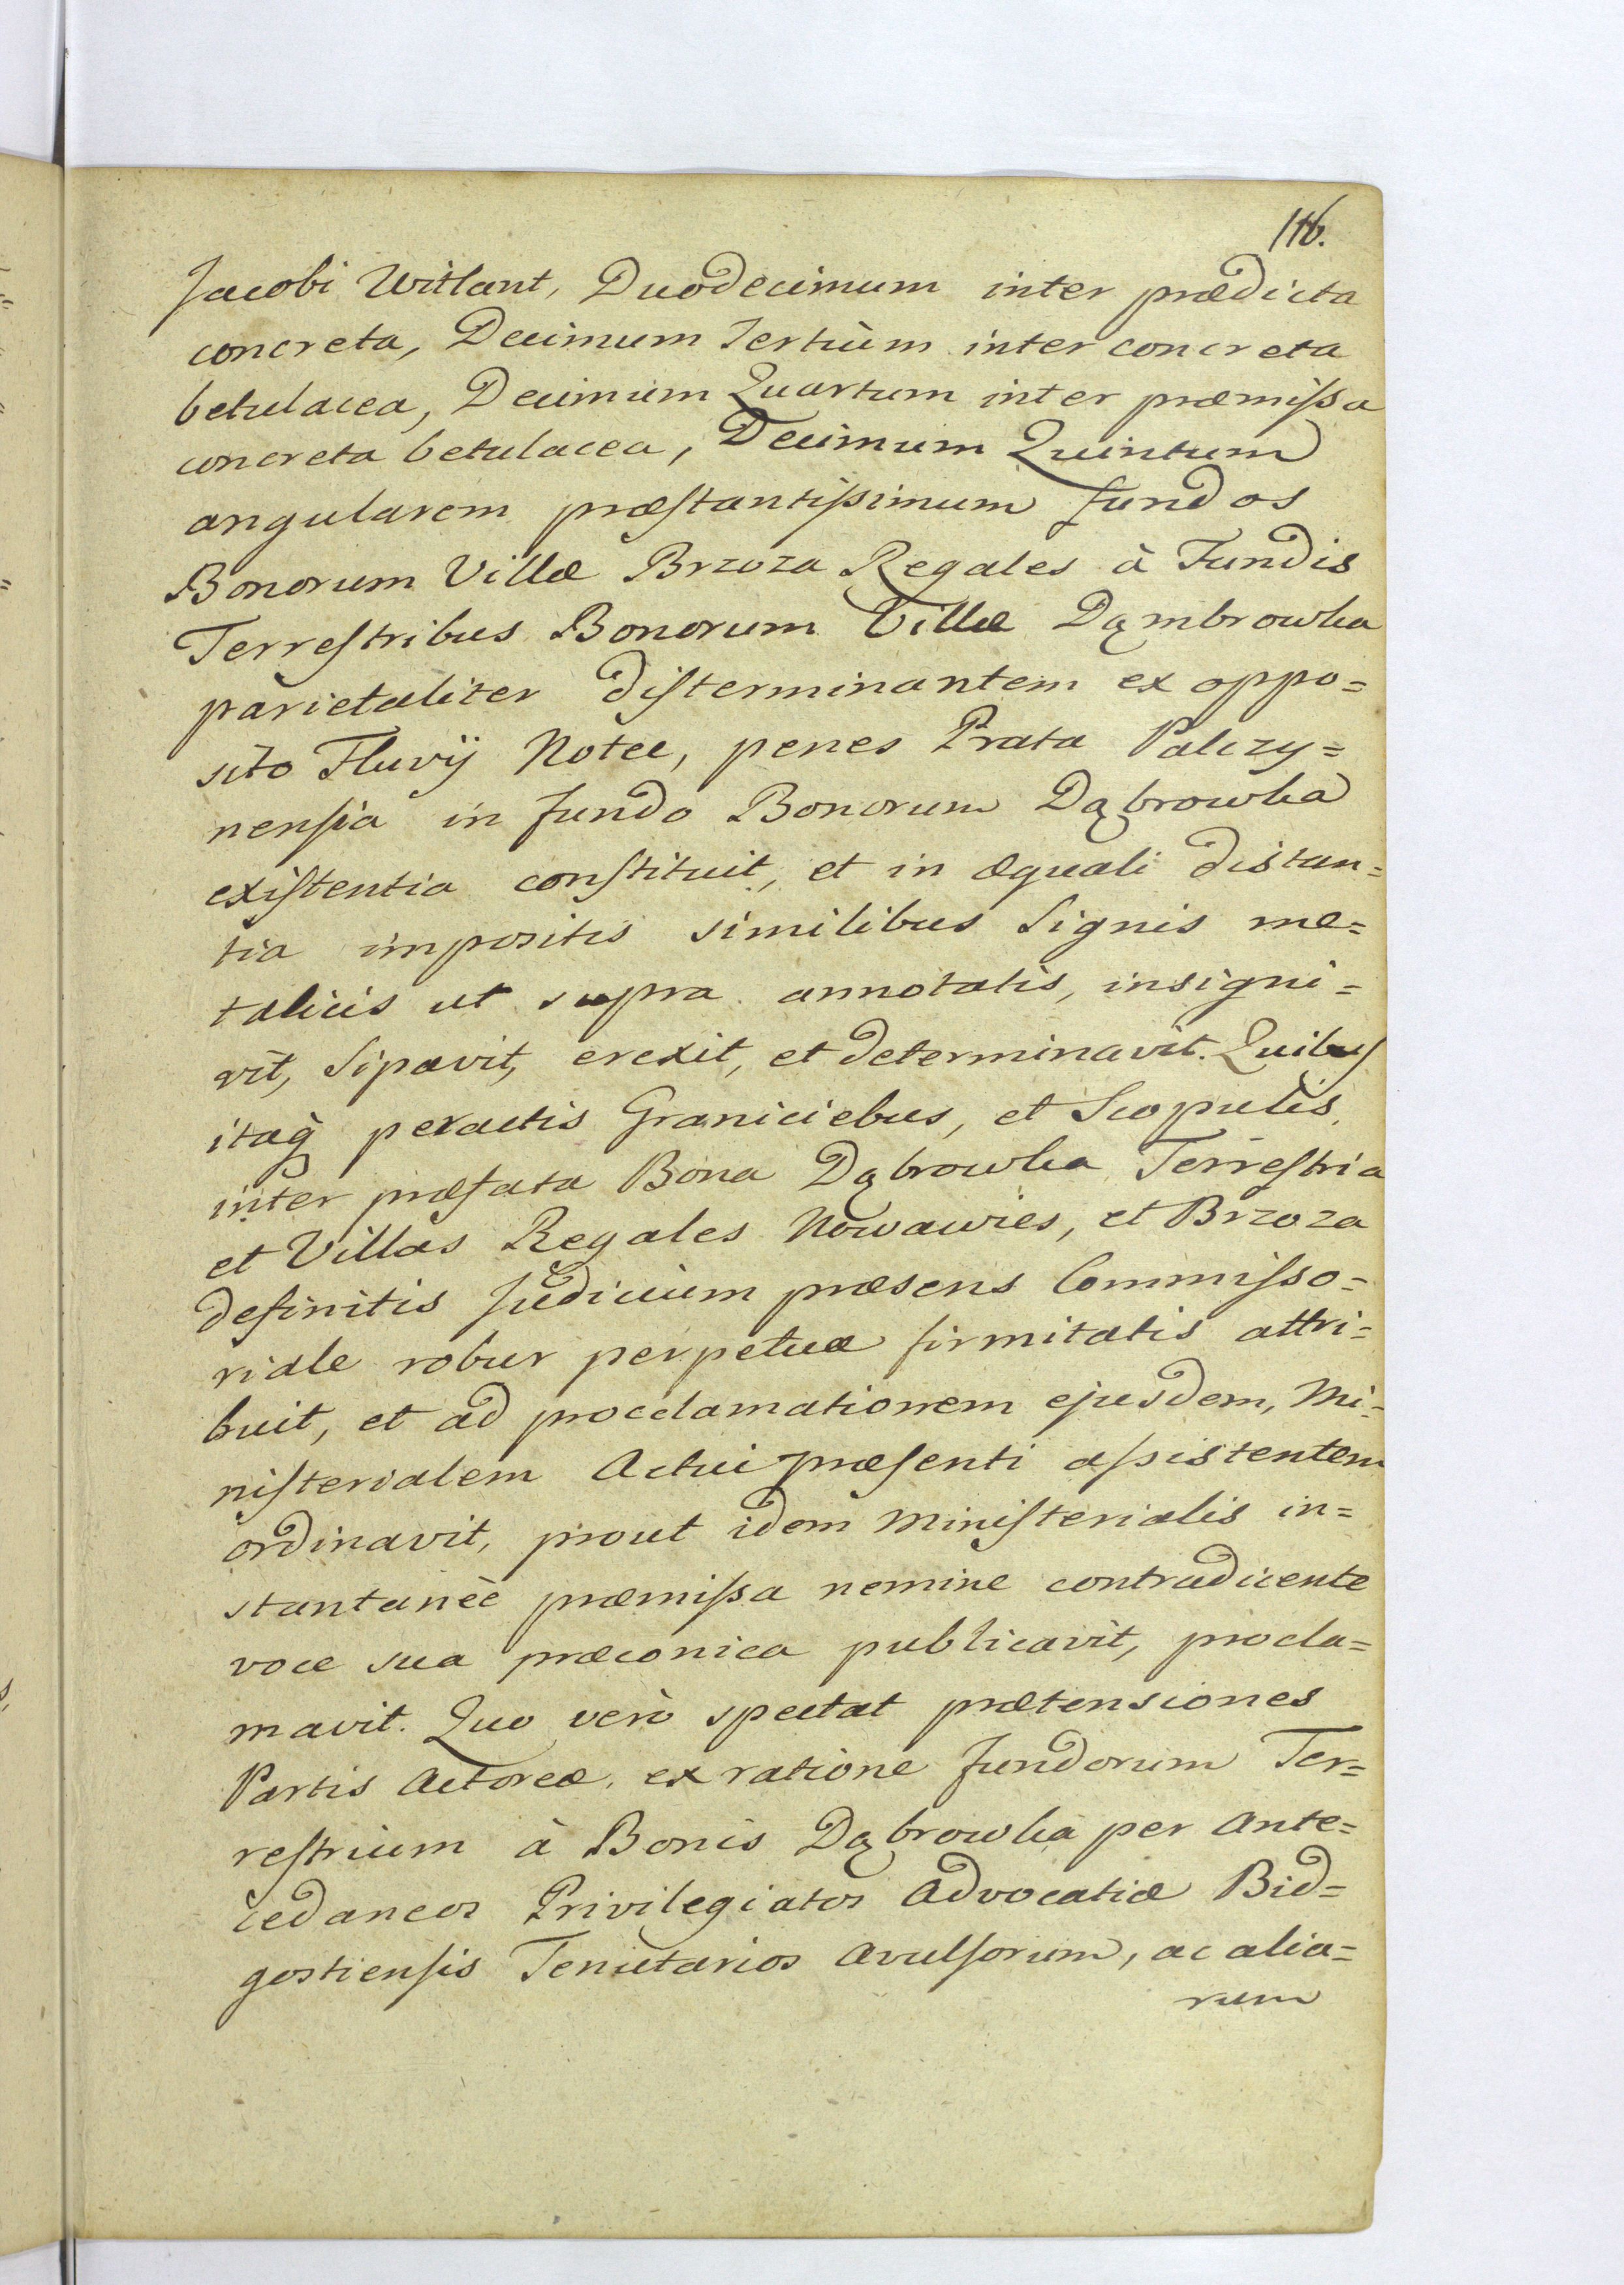 116.
Jacobi Witlant, Duodecimum inter prædicta
concreta, Decimum Tertium inter concreta
betulacea, Decimum Quartum inter præmiſsa
concreta betulacea, Decimum Quintum
angularem præſtantiſsimum fundos
Bonorum Villæ Brzoza Regales à Fundis
Terreſtribus Bonorum Villæ Dąmbrowka
parietaliter diſterminantem ex oppo=
sito Fluvij Notec, penes Prata Palczy=
nenſia in fundo Bonorum Dąbrowka
exiſtentia conſtituit, et in æquali distan=
tia impositis similibus Signis me=
talicis ut supra annotatis, insigni=
vit, Sipavit, erexit, et determinavit. Quibuſ
itaq̀ peractis Graniciebus, et Scopulis,
inter præfata Bona Dąbrowka Terreſtria
et Villas Regales Nowawies, et Brzoza
definitis Judicium præsens Commiſso=
riale robur perpetuæ firmitatis attri=
buit, et ad proclamationem ejusdem, Mi=
niſterialem Actui præſenti aſsistentem
ordinavit, prout idem Miniſterialis in=
stantaneè præmiſsa nemine contradicente
voce sua præconica publicavit, procla=
mavit. Quo verò spectat prætensiones
Partis Actoreæ, ex ratione fundorum Ter=
reſtrium à Bonis Dąbrowka per Ante=
cedaneos Privilegiatos Advocatiæ Bid=
gostienſis Tenutarios avulſorum, ac alia=
rum